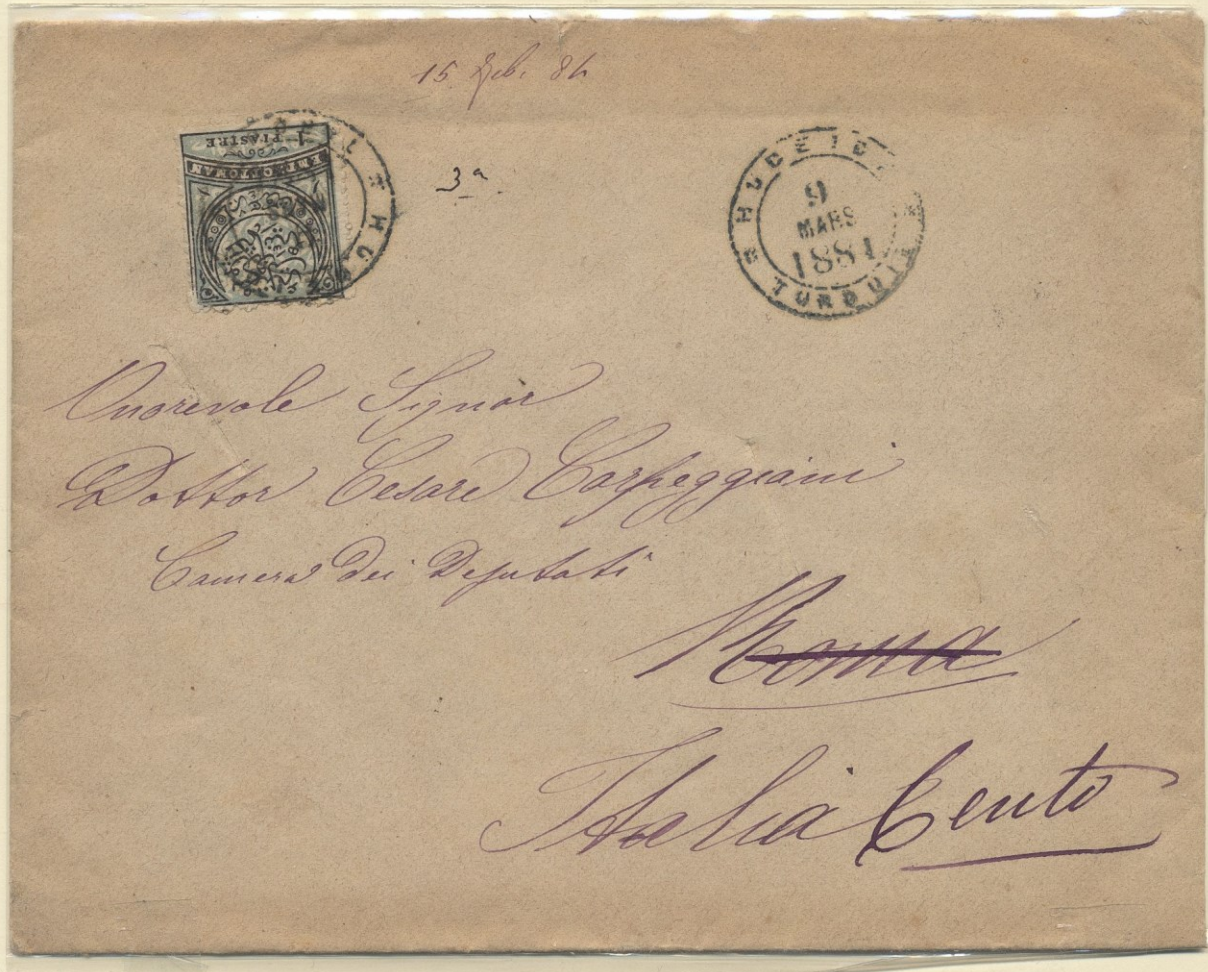 15 Feb. 84
1 PIASTRE
EMP. OTTOMAN
3ª
HODEIDA
9
MARS
1881
TURQUIE
Onorevole Signor
Dottor Cesare Carpeggiani
Camera dei Deputati
Roma
Italia Cento